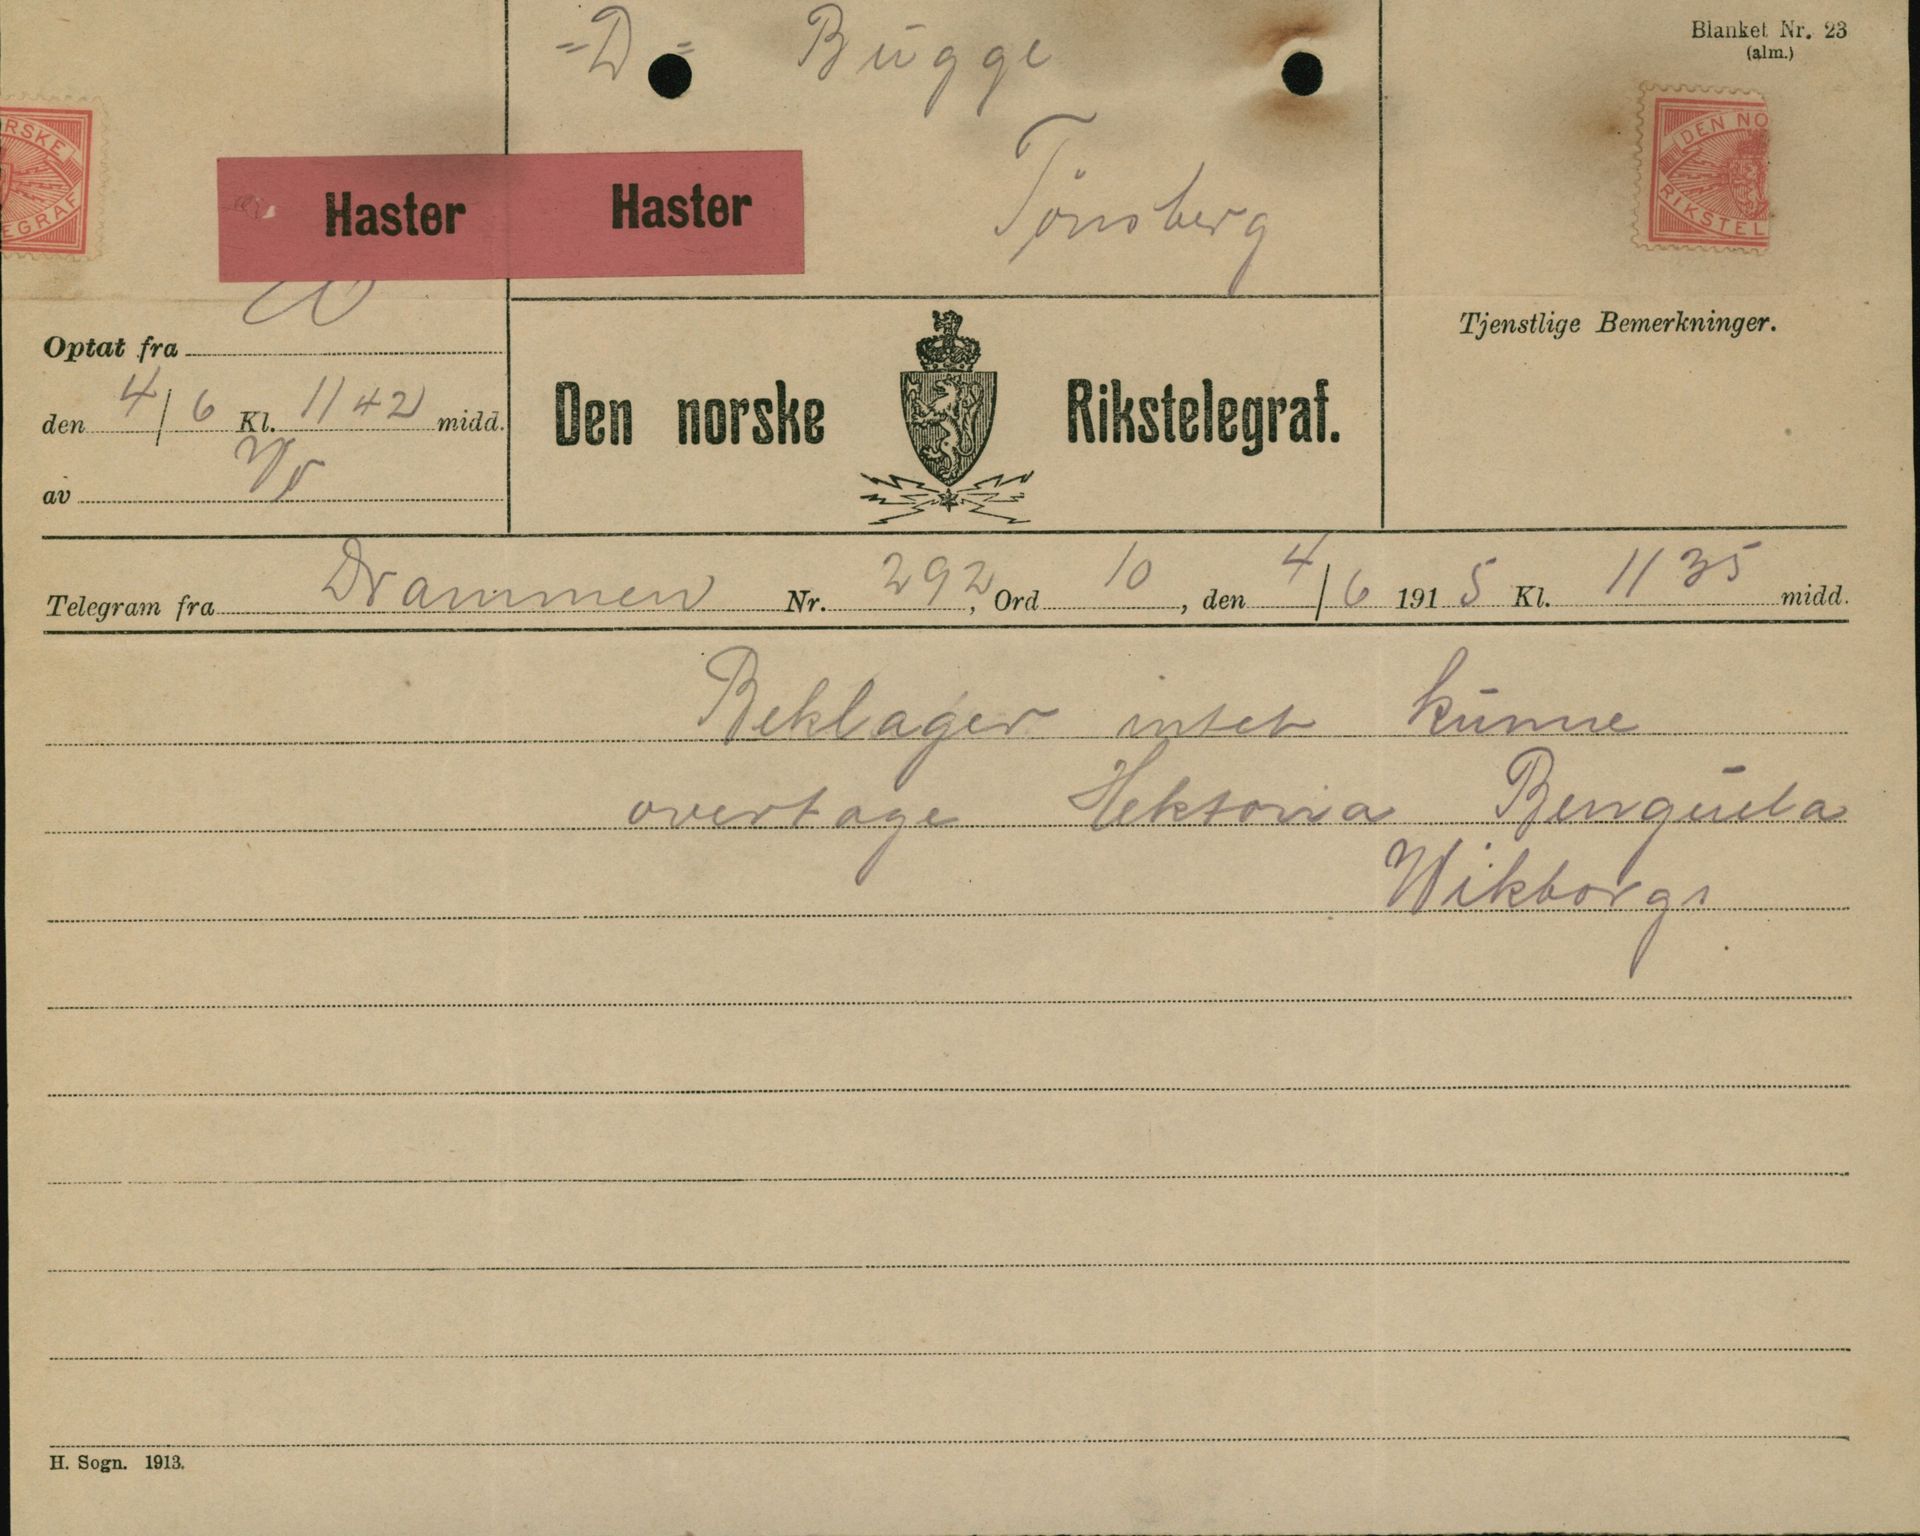 Blanket Nr. 23
(alm.)
=D= Bugge
Tønsberg
RSKE
EGRAF
DEN NO
RIKSTEL
Haster Haster
Tjenstlige Bemerkninger.
Optat fra
den 4/6 Kl. 11 42 midd.
av
Den norske Rikstelegraf.
Telegram fra Drammen Nr. 292, Ord 10, den 4/6 1915 Kl. 11 35 midd.
Beklager intet kunne
overtage Hektoria Benguela
Wikborgs
H. Sogn. 1913.